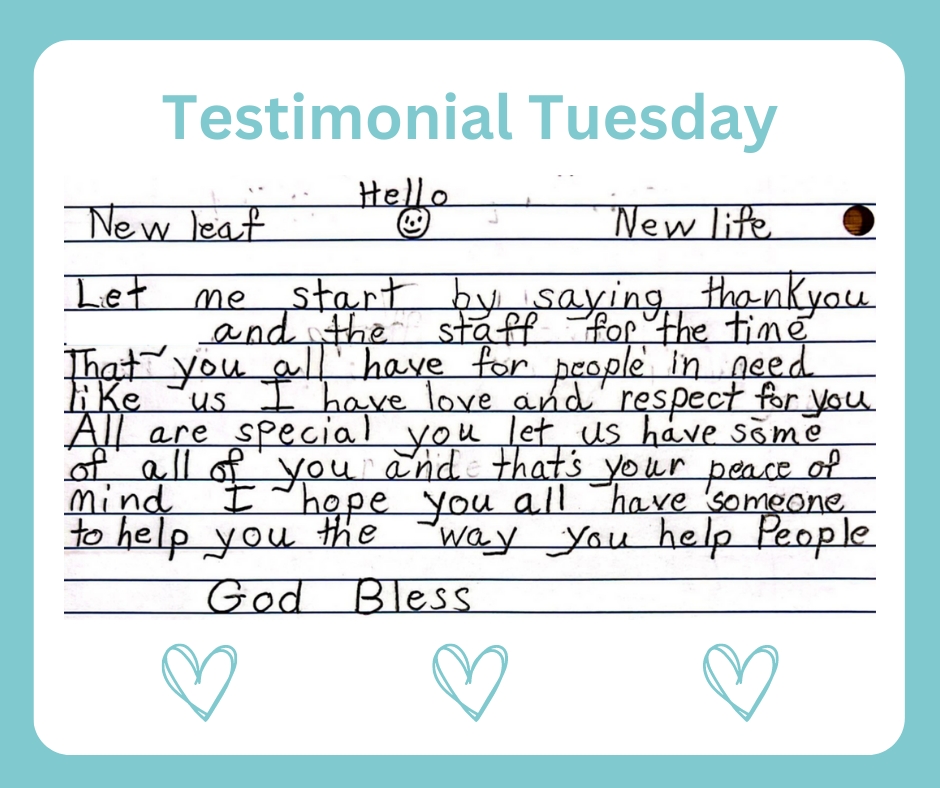 Testimonial Tuesday
Hello
New leaf New life
Let me start by saying thankyou
and the staff for the time
That you all have for people in need
like us I have love and respect for you
All are special you let us have some
of all of you and that's your peace of
mind I hope you all have someone
to help you the way you help People
God Bless